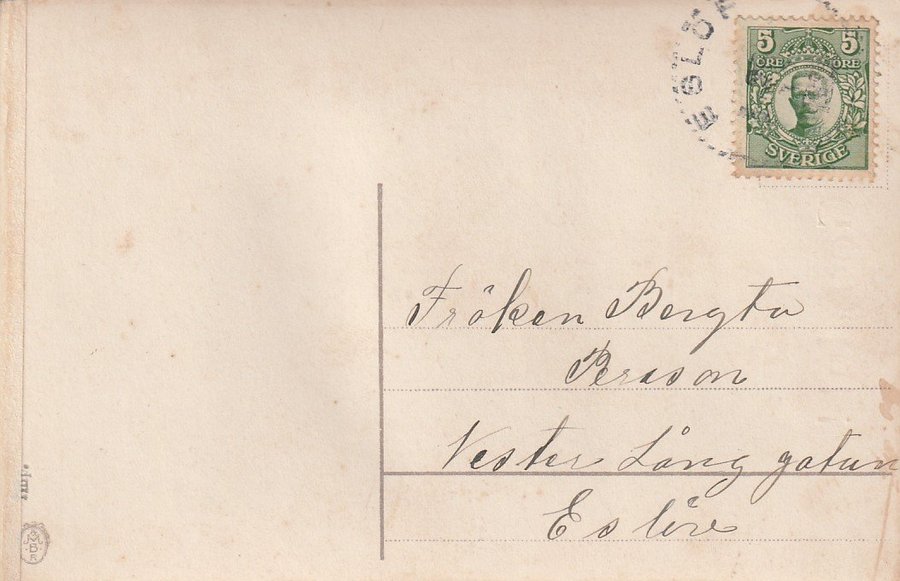 ESLÖ
5 5
ÖRE ÖRE
SVERIGE
Fröken Bengta
Persson
Vester Lång gatan
Eslöv
MBR